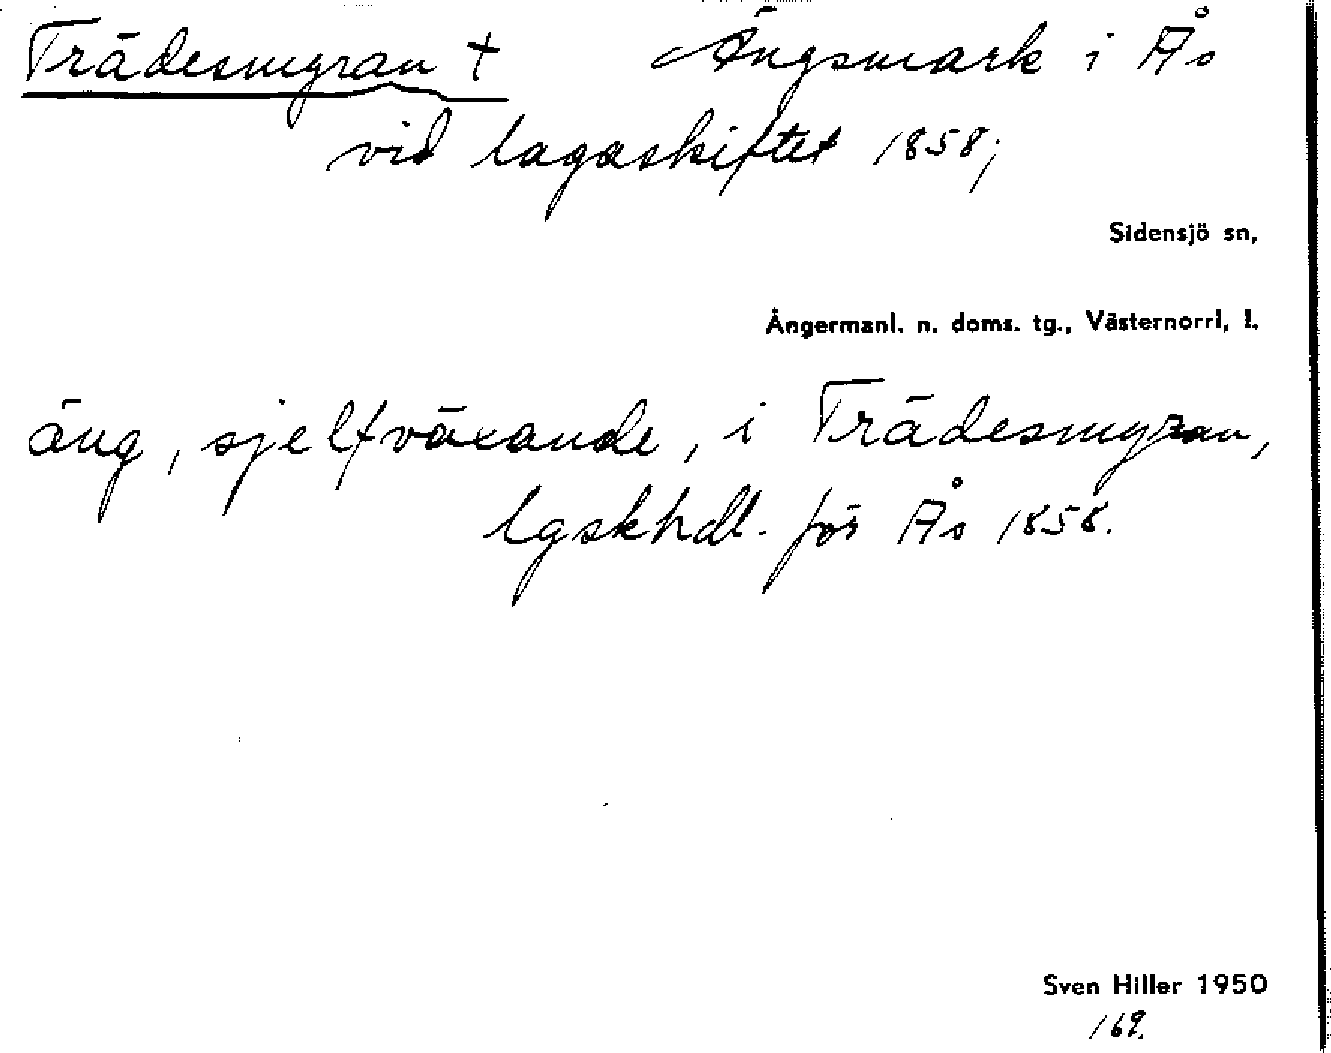 Trädesmyran + Ängsmark i Ås
vid lagaskiftet 1858;
Sidensjö sn,
Ångermanl. n. doms. tg., Västernorrl. l.
äng, sjelfväxande, i Trädesmyran,
lgskhdl. för Ås 1858.
Sven Hiller 1950
169.